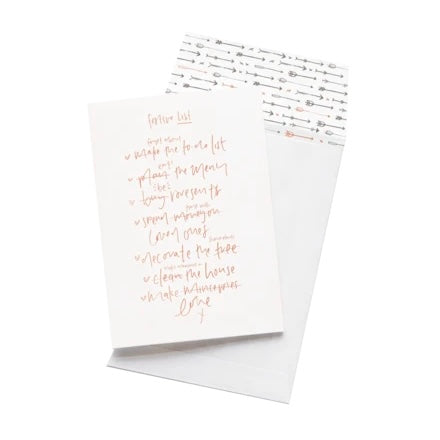 festive list
forget about
make the to-do list
eat!
plan the menu
'be'
buy presents
spend money on
loved ones
decorate the tree
clean the house
make mince pies
love
x